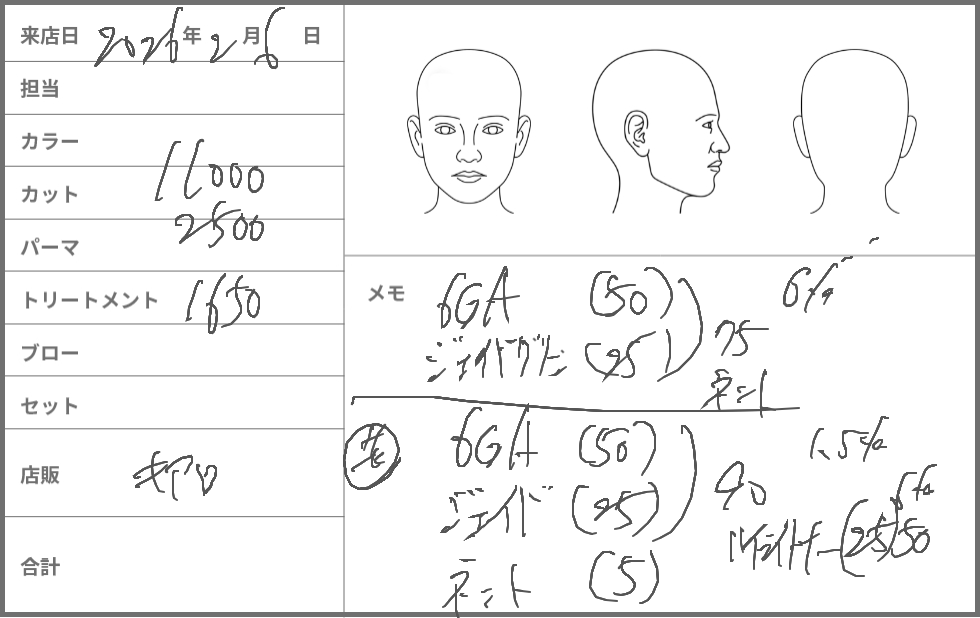 来店日 2026年2月6日
担当
カラー
11000
カット
2500
パーマ
トリートメント 1650
ブロー
セット
店販 キアロ
合計
メモ 6GA (50) 6%
ジェイドグリーン (25) 75
オーント
6GA (50) 1.5%
ジェイド (25) 90 6%
(25) 50
(5)